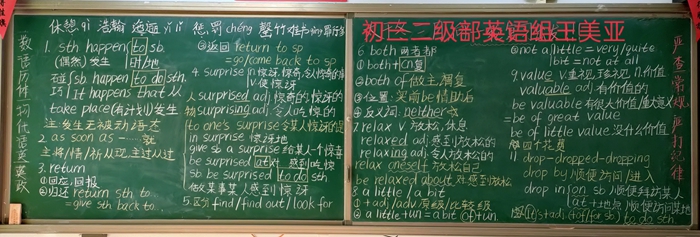 休憩 qì 浩瀚 逦迤 yǐ lǐ 惩罚 chéng 罄竹难书
初三二级部英语组王美亚
数语历体物化语英英政
1. sth happen to sb.
(偶然)发生 时/地
碰巧 sb happen to do sth
It happens that 从
take place (有计划)发生
注:发生无被动语态
2. as soon as 一…就
主将/情/祈从现,主过从过
3. return
①回应/回报
②归还 return sth to
= give sth back to
③返回 return to sp
= go/come back to sp
4. surprise n 惊讶,惊奇,令人惊奇的事
v 使惊讶
人 surprised adj 惊奇的惊讶的
物 surprising adj 令人吃惊的
to one's surprise 令某人惊讶的是
in surprise 惊讶地
give sb a surprise 给某人一个惊喜
be surprised at 对…感到吃惊
be surprised to do sth
做某事某人感到惊讶
5. 区分 find/find out/look for
6 both 两者都
① both + n复
② both of 做主,谓复
③ 位置:实前be情助后
④ 反义词: neither
7 relax v 放松,休息
relaxed adj 感到放松的
relaxing adj 令人放松的
relax oneself 放松自己
be relaxed about 对…感到放松
8 a little / a bit
① + adj/adv 原级/比较级
② a little + un = a bit of + un.
③ not a little = very/quite
not a bit = not at all
9. value v 重视,珍视 n. 价值
valuable adj 有价值的
be valuable 有很大价值/重大意义
= be of great value
be of little value 没什么价值
做四个花员
11 drop-dropped-dropping
drop by 顺便访问/进入
drop in on sb 顺便拜访某人
at + 地点 顺便访问某地
+ adj (for/of sb) to do sth
严查常规严打纪律